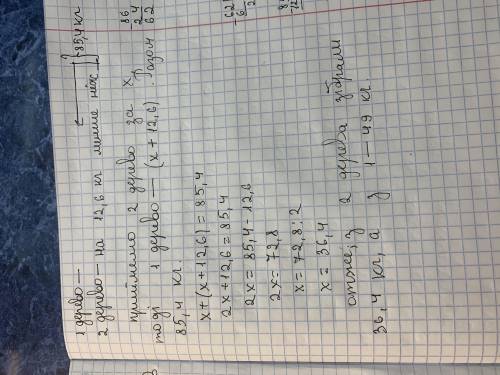 1 дерево —
2 дерево — на 12,6 кг менше ніж 85,4 кг
приймемо 2 дерево за x,
тоді 1 дерево — (x + 12,6). Разом
85,4 кг.
x + (x + 12,6) = 85,4
2x + 12,6 = 85,4
2x = 85,4 - 12,6
2x = 72,8
x = 72,8 : 2
x = 36,4
отже; з 2 дерева зібрали
36,4 кг, а з 1 — 49 кг.
86
24
62